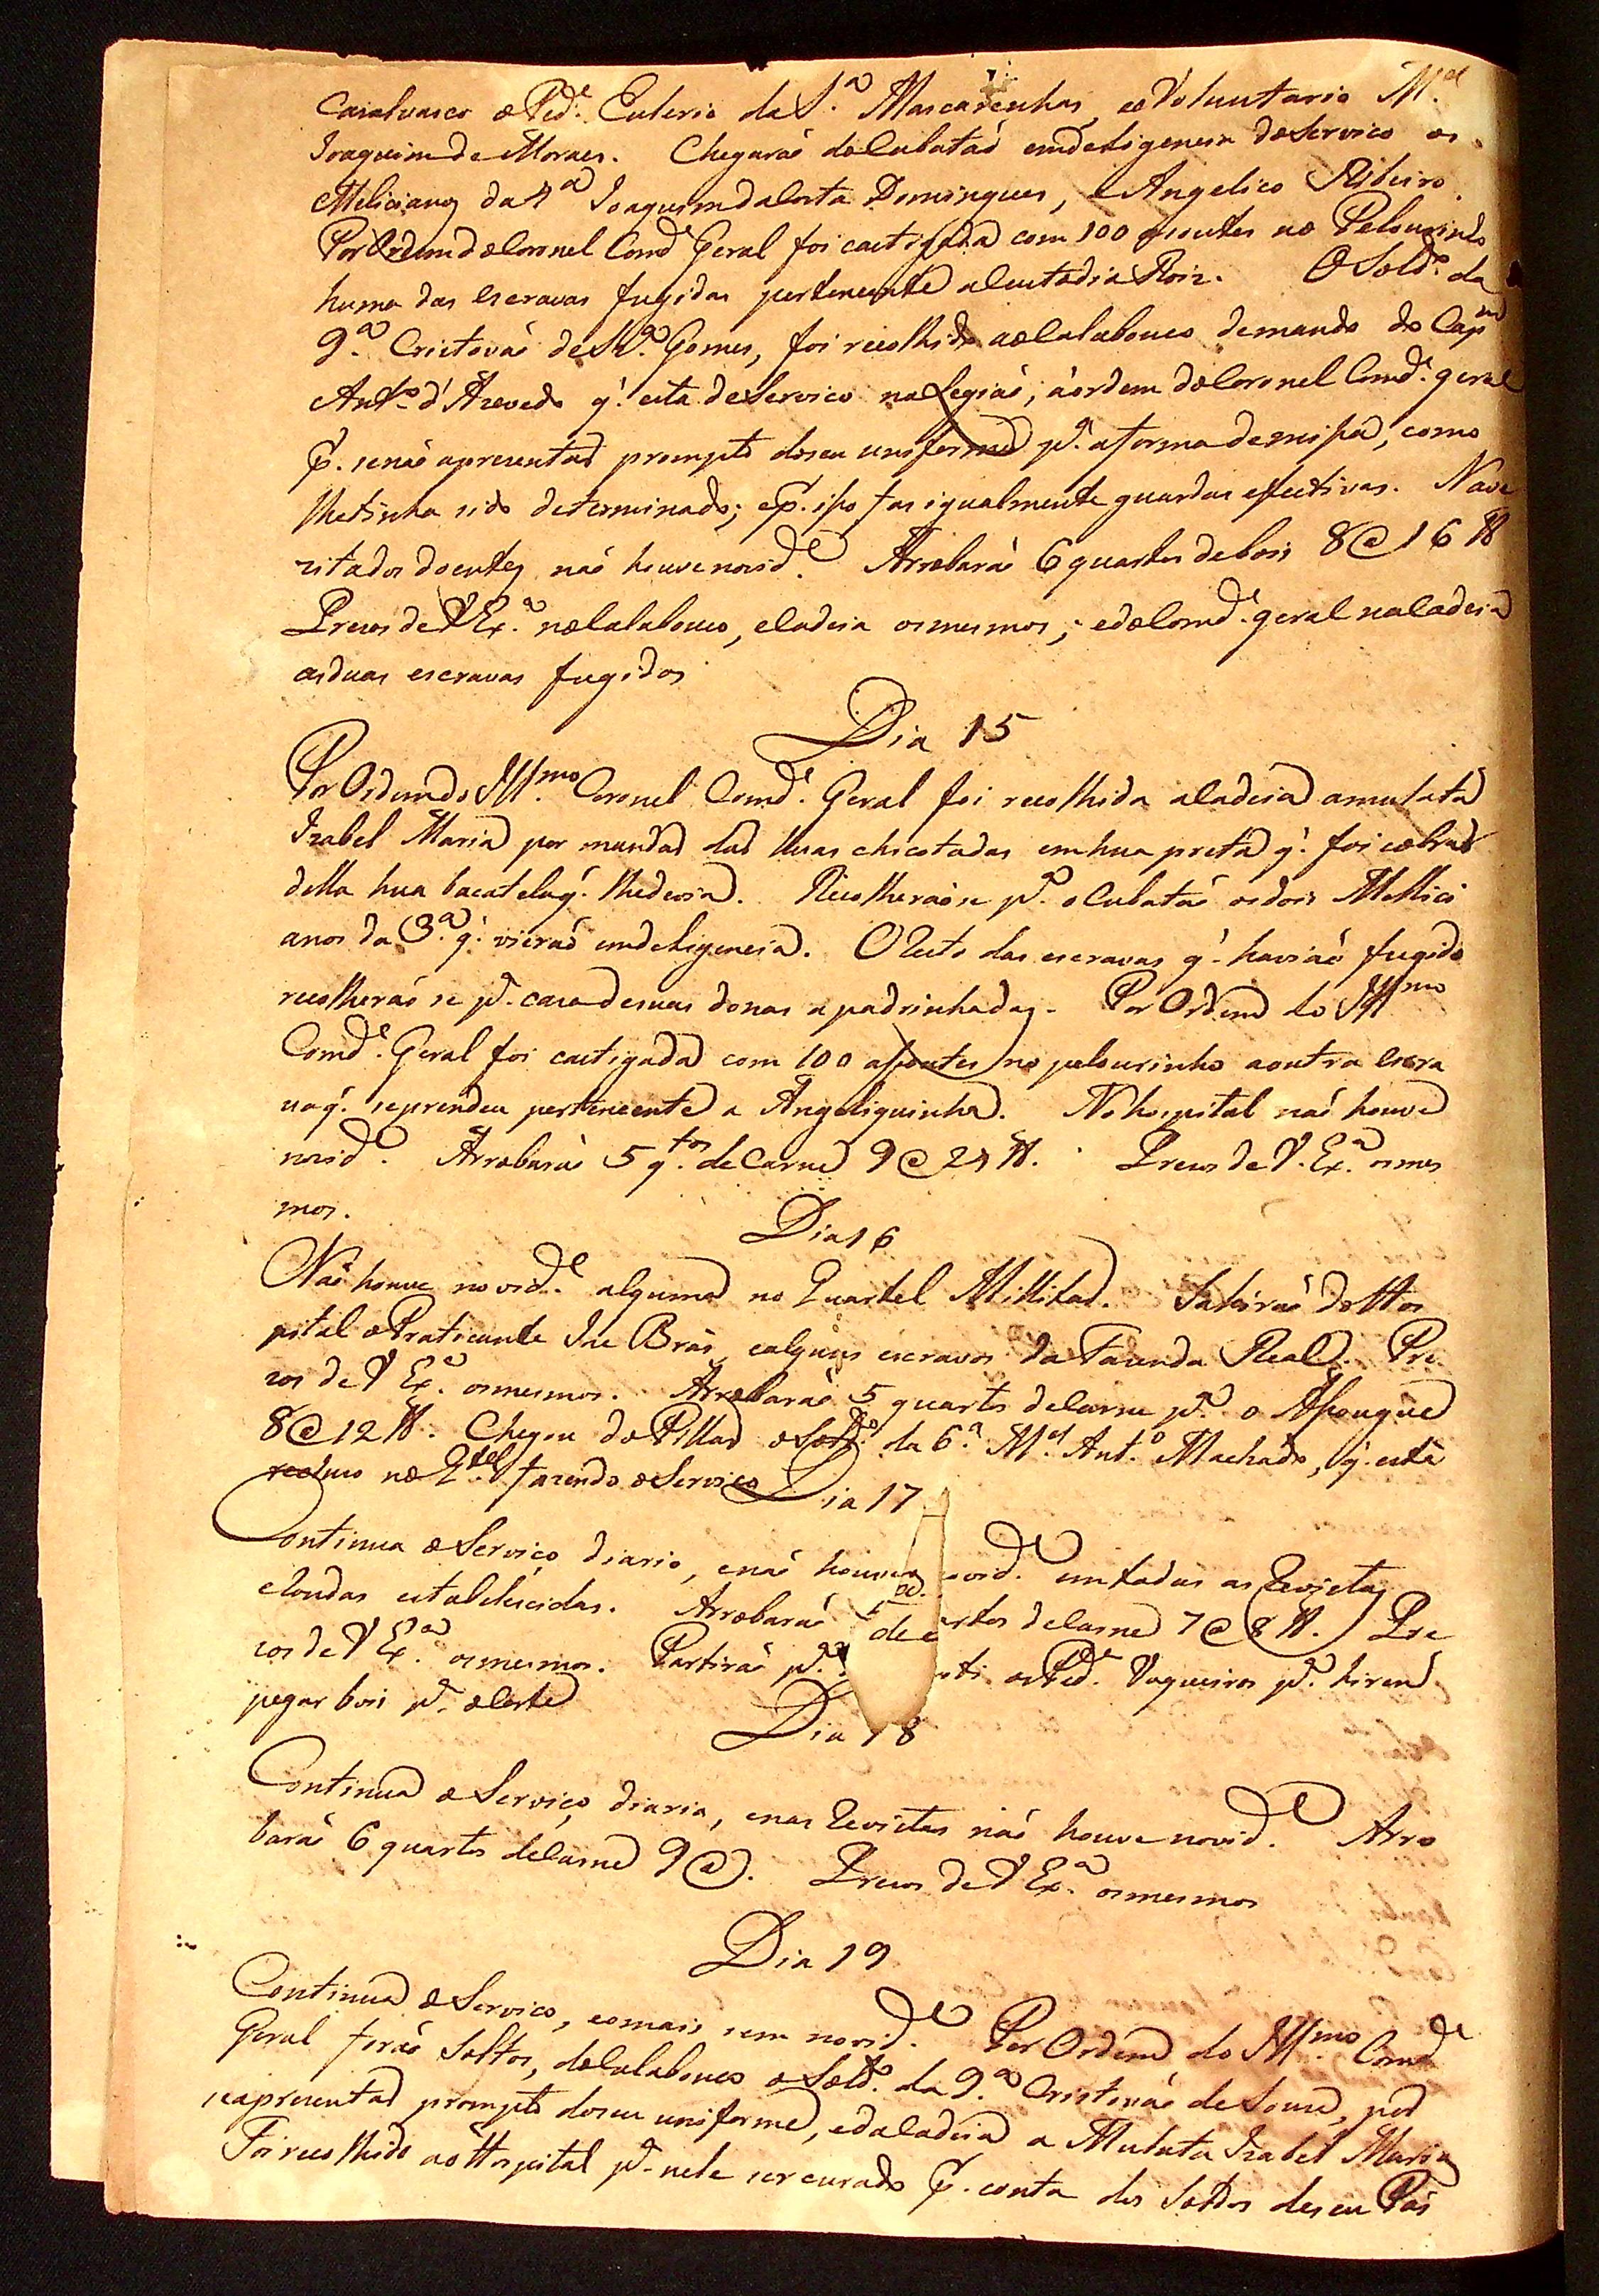 Casalvasco o Ped.e Euterio da S.a Mascarenhas, eo Voluntario M.el
Joaquim de Moraes. Chegaraõ do Cubataõ emdeligencia do Servico os
Melicianos da 4.a Joaquim da Costa Domingues, e Angelico Ribeiro.
Por Ordem do Coronel Comd.e Geral foi castigada com 100 asoutes no Pelourinho
huma das escravas fugidas pertencente a Custodia Roiz. O Sold.o da
9.a Cristovaõ de S.a Gomes, foi recolhido ao Calabouco demando do Cap.am
Ant.o d'Azevedo q.' esta de Servico na Legiaõ, áordem do Coronel Comd.e geral
p. senaõ apresentar prompto doseu uniforme p.a aforma demissa, como
lhetinha sido determinado; e p. isso fas igualmente guardas effectivas. Nave
zitados doentes naõ houvenovid.e Arrobaraõ 6 quartos debois 8@16 lb
Prezos de V Ex.a nocalabouco, ecadeia osmesmos; edo Comd.e geral nacadeia
asduas escravas fugidas
Dia 15
Por Ordem do Ill.mo Coronel Comd.e Geral foi recolhida acadeia amulata
Izabel Maria por mandar dar huas chicotadas emhua preta q.' foi cobrar
della hua bacatela q.' lhedevia. Recolheraõse p.a o Cubataõ osdois Mellici
anos da 3.a q.' vieraõ emdeligencia. O resto das escravas q.' haviaõ fugido
recolheraõ se p.a casa desuas donas apadrinhadas. Por Ordem do Ill.mo
Comd.e Geral foi castigada com 100 assoutes no pelourinho aoutra escra
vaq.' seprendeu pertencente a Angeliquinha. No hospital naõ houve
novid.e Arrobaraõ 5 q.tos de Carne 9@24 lb. Prezos de V. Ex.a osmes
mos.
Dia 16
Naõ houve novid.e alguma no Quartel Millitar. Sahiraõ do Hos
pital o Praticante Jze Brás, ealguns escravos da Fazenda Real. Pre
zos de V Ex.a osmesmos. Arrobaraõ 5 quartos decarne p.a o Assougue
8@12 lb. Chegou do Pillar o Sold.o da 6.a M.el Ant.o Machado, q.' está
no Q.tel fazendo o Servico
Dia 17
Continua o Servico diario, enaõ houve ovid.e emtodas as Revistas
eRondas estabelecidas. Arrobaraõ artos decarne 7@8 lb. Pre
zos de V Ex.a osmesmos. Partiraõ p.a os Ped.e Vaqueiros p.a hirem
pegar bois p.a ocorte
Dia 18
Continua o Serviço diario, enas Revistas naõ houve novid.e Arro
baraõ 6 quartos decarne 9@. Prezos de V Ex.a osmesmos
Dia 19
Continua o Servico, eomais sem novid.e Por Ordem do Ill.mo Comd.e
Geral foraõ Soltos, docalabouco o Sold.o da 9.a Cristovaõ de Souza, por
seapresentar prompto doseu uniforme, edacadeia a Mulata Izabel Maria
Foirecolhido aoHospital p.a nele sercurado p. conta dos Soldos deseu Pai